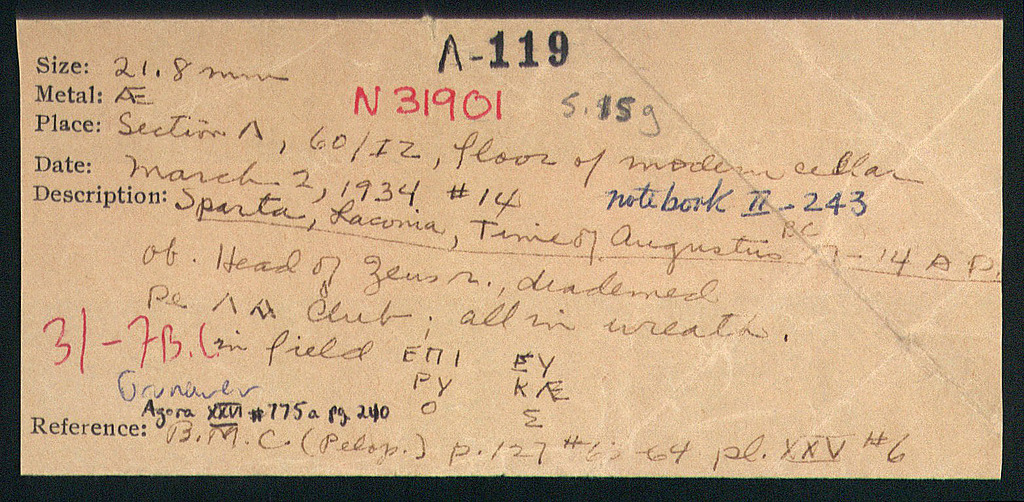 Λ-119
Size: 21.8 mm
Metal: Æ
N 31901 5.15g
Place: Section Λ, 60/ΙΖ, floor of modern cellar
Date: March 2, 1934 #14 notebook II-243
Description: Sparta, Laconia, Time of Augustus BC 7-14 A D.
ob. Head of Zeus r., diademed
Re ΛΑ Club; all in wreath.
31-7B.C. in field ΕΠΙ ΕΥ
ΡΥ ΚΛΕ
Ο Σ
Grunauer
Agora XXVI #775a pg 240
Reference: B.M.C. (Pelop.) p. 127 #63-64 pl. XXV #6